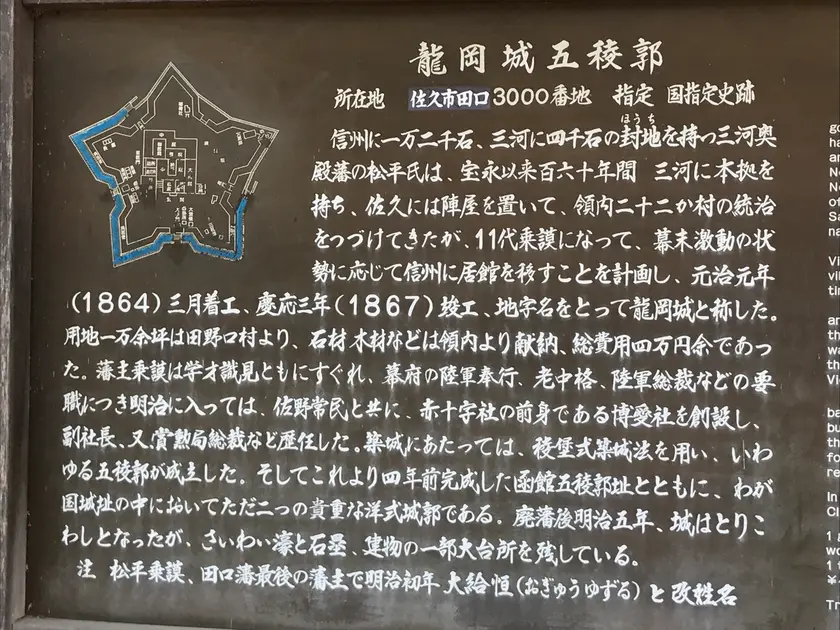 龍岡城五稜郭
所在地 佐久市田口3000番地 指定 国指定史跡
信州に一万二千石、三河に四千石の封地を持つ三河奥
ほうち
殿藩の松平氏は、宝永以来百六十年間 三河に本拠を
持ち、佐久には陣屋を置いて、領内二十二か村の統治
をつづけてきたが、11代乗謨になって、幕末激動の状
勢に応じて信州に居館を移すことを計画し、元治元年
(1864)三月着工、慶応三年(1867)竣工、地字名をとって龍岡城と称した。
用地一万余坪は田野口村より、石材木材などは領内より献納、総費用四万円余であっ
た。藩主乗謨は学才識見ともにすぐれ、幕府の陸軍奉行、老中格、陸軍総裁などの要
職につき明治に入っては、佐野常民と共に、赤十字社の前身である博愛社を創設し、
副社長、又賞勲局総裁など歴任した。築城にあたっては、稜堡式築城法を用い、いわ
ゆる五稜郭が成立した。そしてこれより四年前完成した函館五稜郭址とともに、わが
国城址の中においてただ二つの貴重な洋式城郭である。廃藩後明治五年、城はとりこ
わしとなったが、さいわい濠と石塁、建物の一部大台所を残している。
注 松平乗謨、田口藩最後の藩主で明治初年 大給恒(おぎゅうゆずる)と改姓名